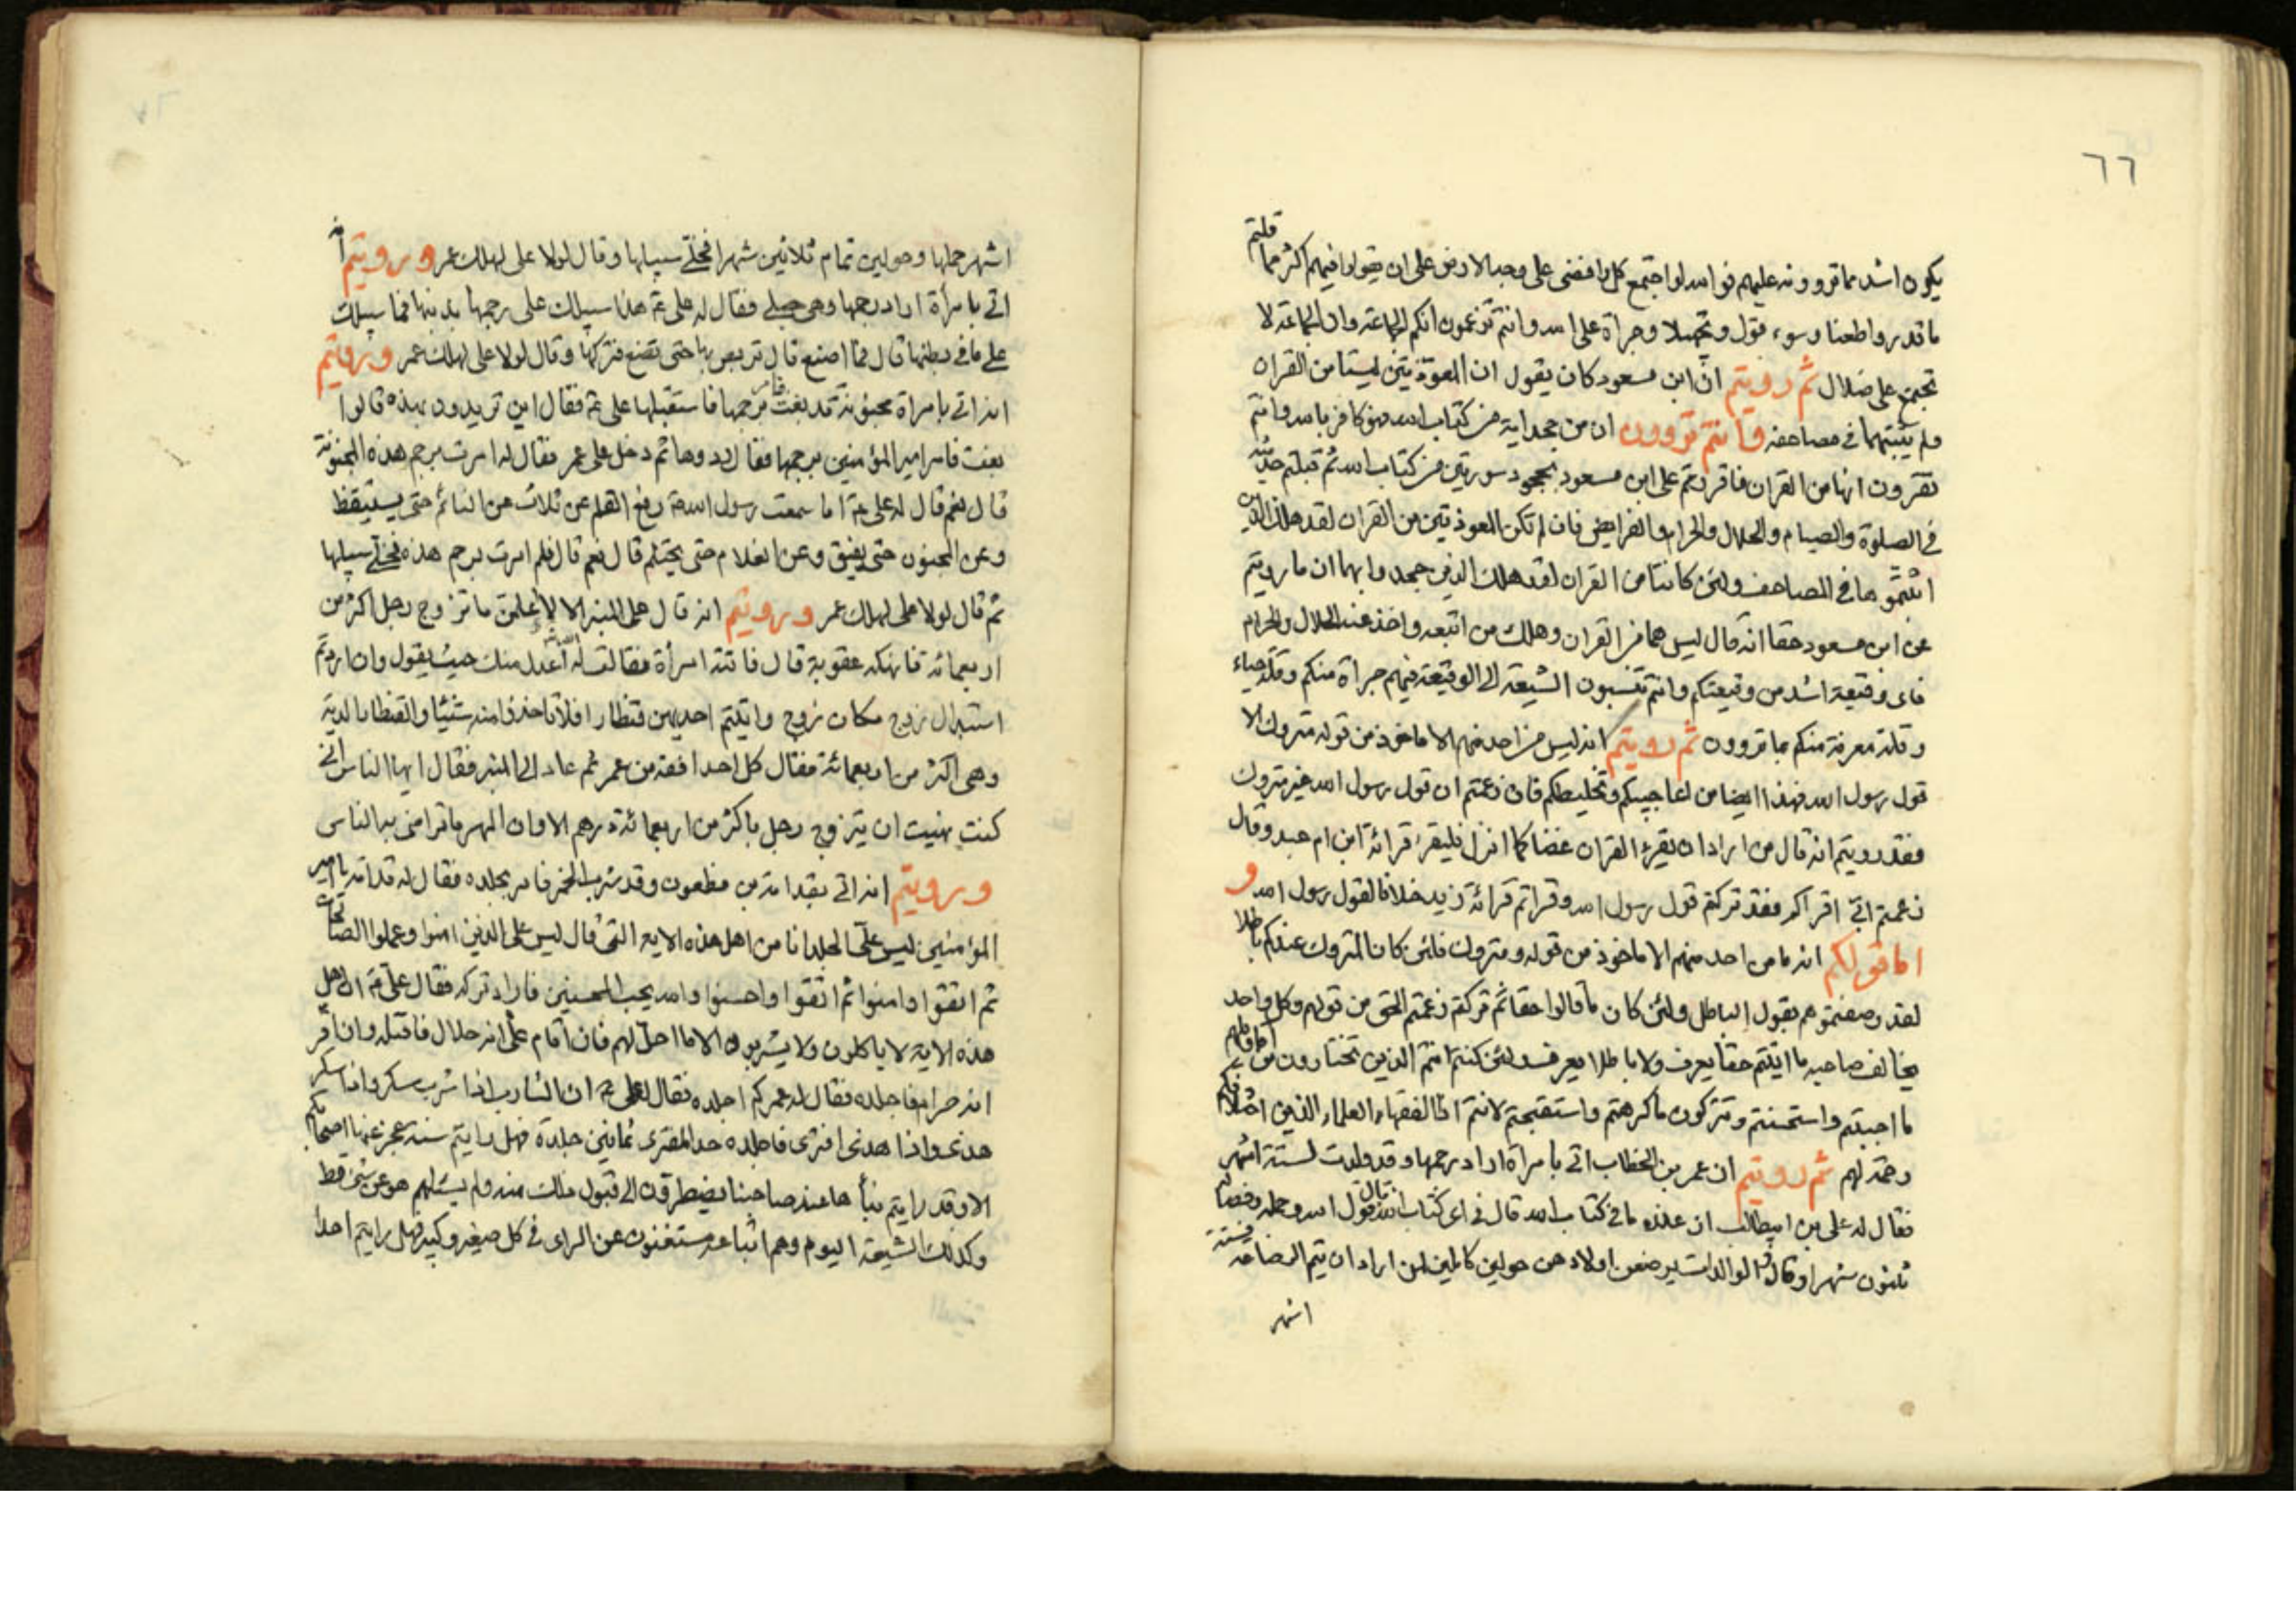 ٦٦
يكون اشد مما تروونه عليهم فوالله لو اجتمع كل رافضى على وجه الارض على ان يقولوا فيهم اكثر مما قلتم
ما قدروا طعنا وسوء قول وتجهيلا وجراة على الله وانتم تزعمون انكم الجماعة وان الجماعة لا
تجتمع على ضلال ثم رويتم انّ ابن مسعود كان يقول ان المعوّذتين ليستا من القران
ولم يثبتهما فى مصاحفه وانتم تروون ان من جحد اية من كتاب الله فهو كافر بالله وانتم
تقرون انها من القران فاقررتم على ابن مسعود بجحود سورتين من كتاب الله ثم قبلتم حديثه
فى الصلوة والصيام والحلال والحرام والفرايض فان لم تكن المعوذتين من القران لقد هلك الذين
اثبتموهما فى المصاحف ولئن كانتا من القران لقد هلك الذين جحدوا بهما ان ما رويتم
عن ابن مسعود حقا انه قال ليس هما من القران وهلك من اتبعه واخذ عنه الحلال والحرام
فاى وقيعة اشد من وقيعتكم وانتم تنسبون الشيعة الى الوقيعة فيهم جراة منكم وقلة حياء
وقلة معرفة منكم بما تروون ثم رويتم انه ليس من احد منهم الا ماخوذ من قوله متروك الا
قول رسول الله فهذا ايضا من اعاجيبكم وتخليطكم فان زعمتم ان قول رسول الله غير متروك
فقد رويتم انه قال من اراد ان يقرء القران غضا كما انزل فليقرء قرائة ابن ام عبد وقال
زعمتم ابىّ اقراكم فقد تركتم قول رسول الله وقراتم قرائة زيد خلافا لقول رسول الله و
اما قولكم انه ما من احد منهم الا ماخوذ من قوله ومتروك فلئن كان المتروك عندكم باطلا
لقد وصفتموهم بقول الباطل ولئن كان ما قالوا حقا ثم تركتم زعمتم الحق من قولهم وكل واحد
يخالف صاحبه ما ايتتم حقا يعرف ولا باطلا يعرف ولئن كنتم انتم الذين تختارون من اقاويلهم
ما احببتم واستحسنتم وتتركون ما كرهتم واستقبحتم لانتم اذا الفقهاء العلماء الذين اختلافكم
رحمة لهم ثم رويتم ان عمر بن الخطاب اتى بامراة اراد رجمها وقد ولدت لستة اشهر
فقال له على بن ابيطالب ان عذره فى كتاب الله قال فى اى كتاب الله قال قول الله وحمله وفصاله
ثلثون شهرا وقال والوالدات يرضعن اولادهن حولين كاملين لمن اراد ان يتم الرضاعة فستة
اشهر
اشهر حملها وحولين تمام ثلاثين شهرا فخلّى سبيلها وقال لولا على لهلك عمر ورويتم انه
اتى بامرأة اراد رجمها وهى حبلى فقال له على ع هذا سبيلك على رجمها بذنبها فما سبيلك
على ما فى بطنها قال فما اصنع قال تربص بها حتى تضع فتركها وقال لولا على لهلك عمر ورويتم
انه اتى بامراة مجنونة قد بغت فامر برجمها فاستقبلها على ع فقال اين تريدون بهذه قالوا
بغت فامر امير المؤمنين برجمها فقال ردوها ثم دخل على عمر فقال له امرت برجم هذه المجنونة
قال نعم قال له على ع اما سمعت رسول الله ص رفع القلم عن ثلاث عن النائم حتى يستيقظ
وعن المجنون حتى يفيق وعن الغلام حتى يحتلم قال نعم قال فلم امرت برجم هذه فخلّى سبيلها
ثم قال لولا على لهلك عمر ورويتم انه قال على المنبر الا لا اعلمن ما تزوج رجل اكثر من
اربعمائه فانهكه عقوبة قال فاتته امرأة فقالت له الله اعدل منك حيث يقول وان اردتم
استبدال زوج مكان زوج واتيتم احديهن قنطارا فلا تاخذوا منه شيئا والقنطار الدية
وهى اكثر من اربعمائة فقال كل احد افقه من عمر ثم عاد الى المنبر فقال ايها الناس انى
كنت نهيت ان يتزوج رجل باكثر من اربعمائة درهم الا وان المهر ما تراضى به الناس
ورويتم انه اتى بقدامة بن مظعون وقد شرب الخمر فامر بجلده فقال له قدامة يا امير
المؤمنين ليس علىّ الجلد انا من اهل هذه الاية التى قال ليس على الذين امنوا وعملوا الصالحات
ثم اتقوا وامنوا ثم اتقوا واحسنوا والله يحب المحسنين فاراد تركه فقال على ع ان اهل
هذه الاية لا ياكلون ولا يشربون الا ما احل لهم فان اقام على انه حلال فاقتله وان اقر
انه حرام فاجلده فقال له عمر كم اجلده فقال له على ع ان الشارب اذا شرب سكر واذا سكر
هذى واذا هذى افترى فاجلده حد المفترى ثمانين جلدة فهل رايتم سنة عجز عنها اصحابكم
الا وقد رايتم نبأها عند صاحبنا يضطرون الى قبول ذلك منه ولم يسئلهم هو عن شئ قط
وكذلك الشيعة اليوم وهم اتباعه مستغنون عن الراى فى كل صغير وكبير فهل رايتم احدا